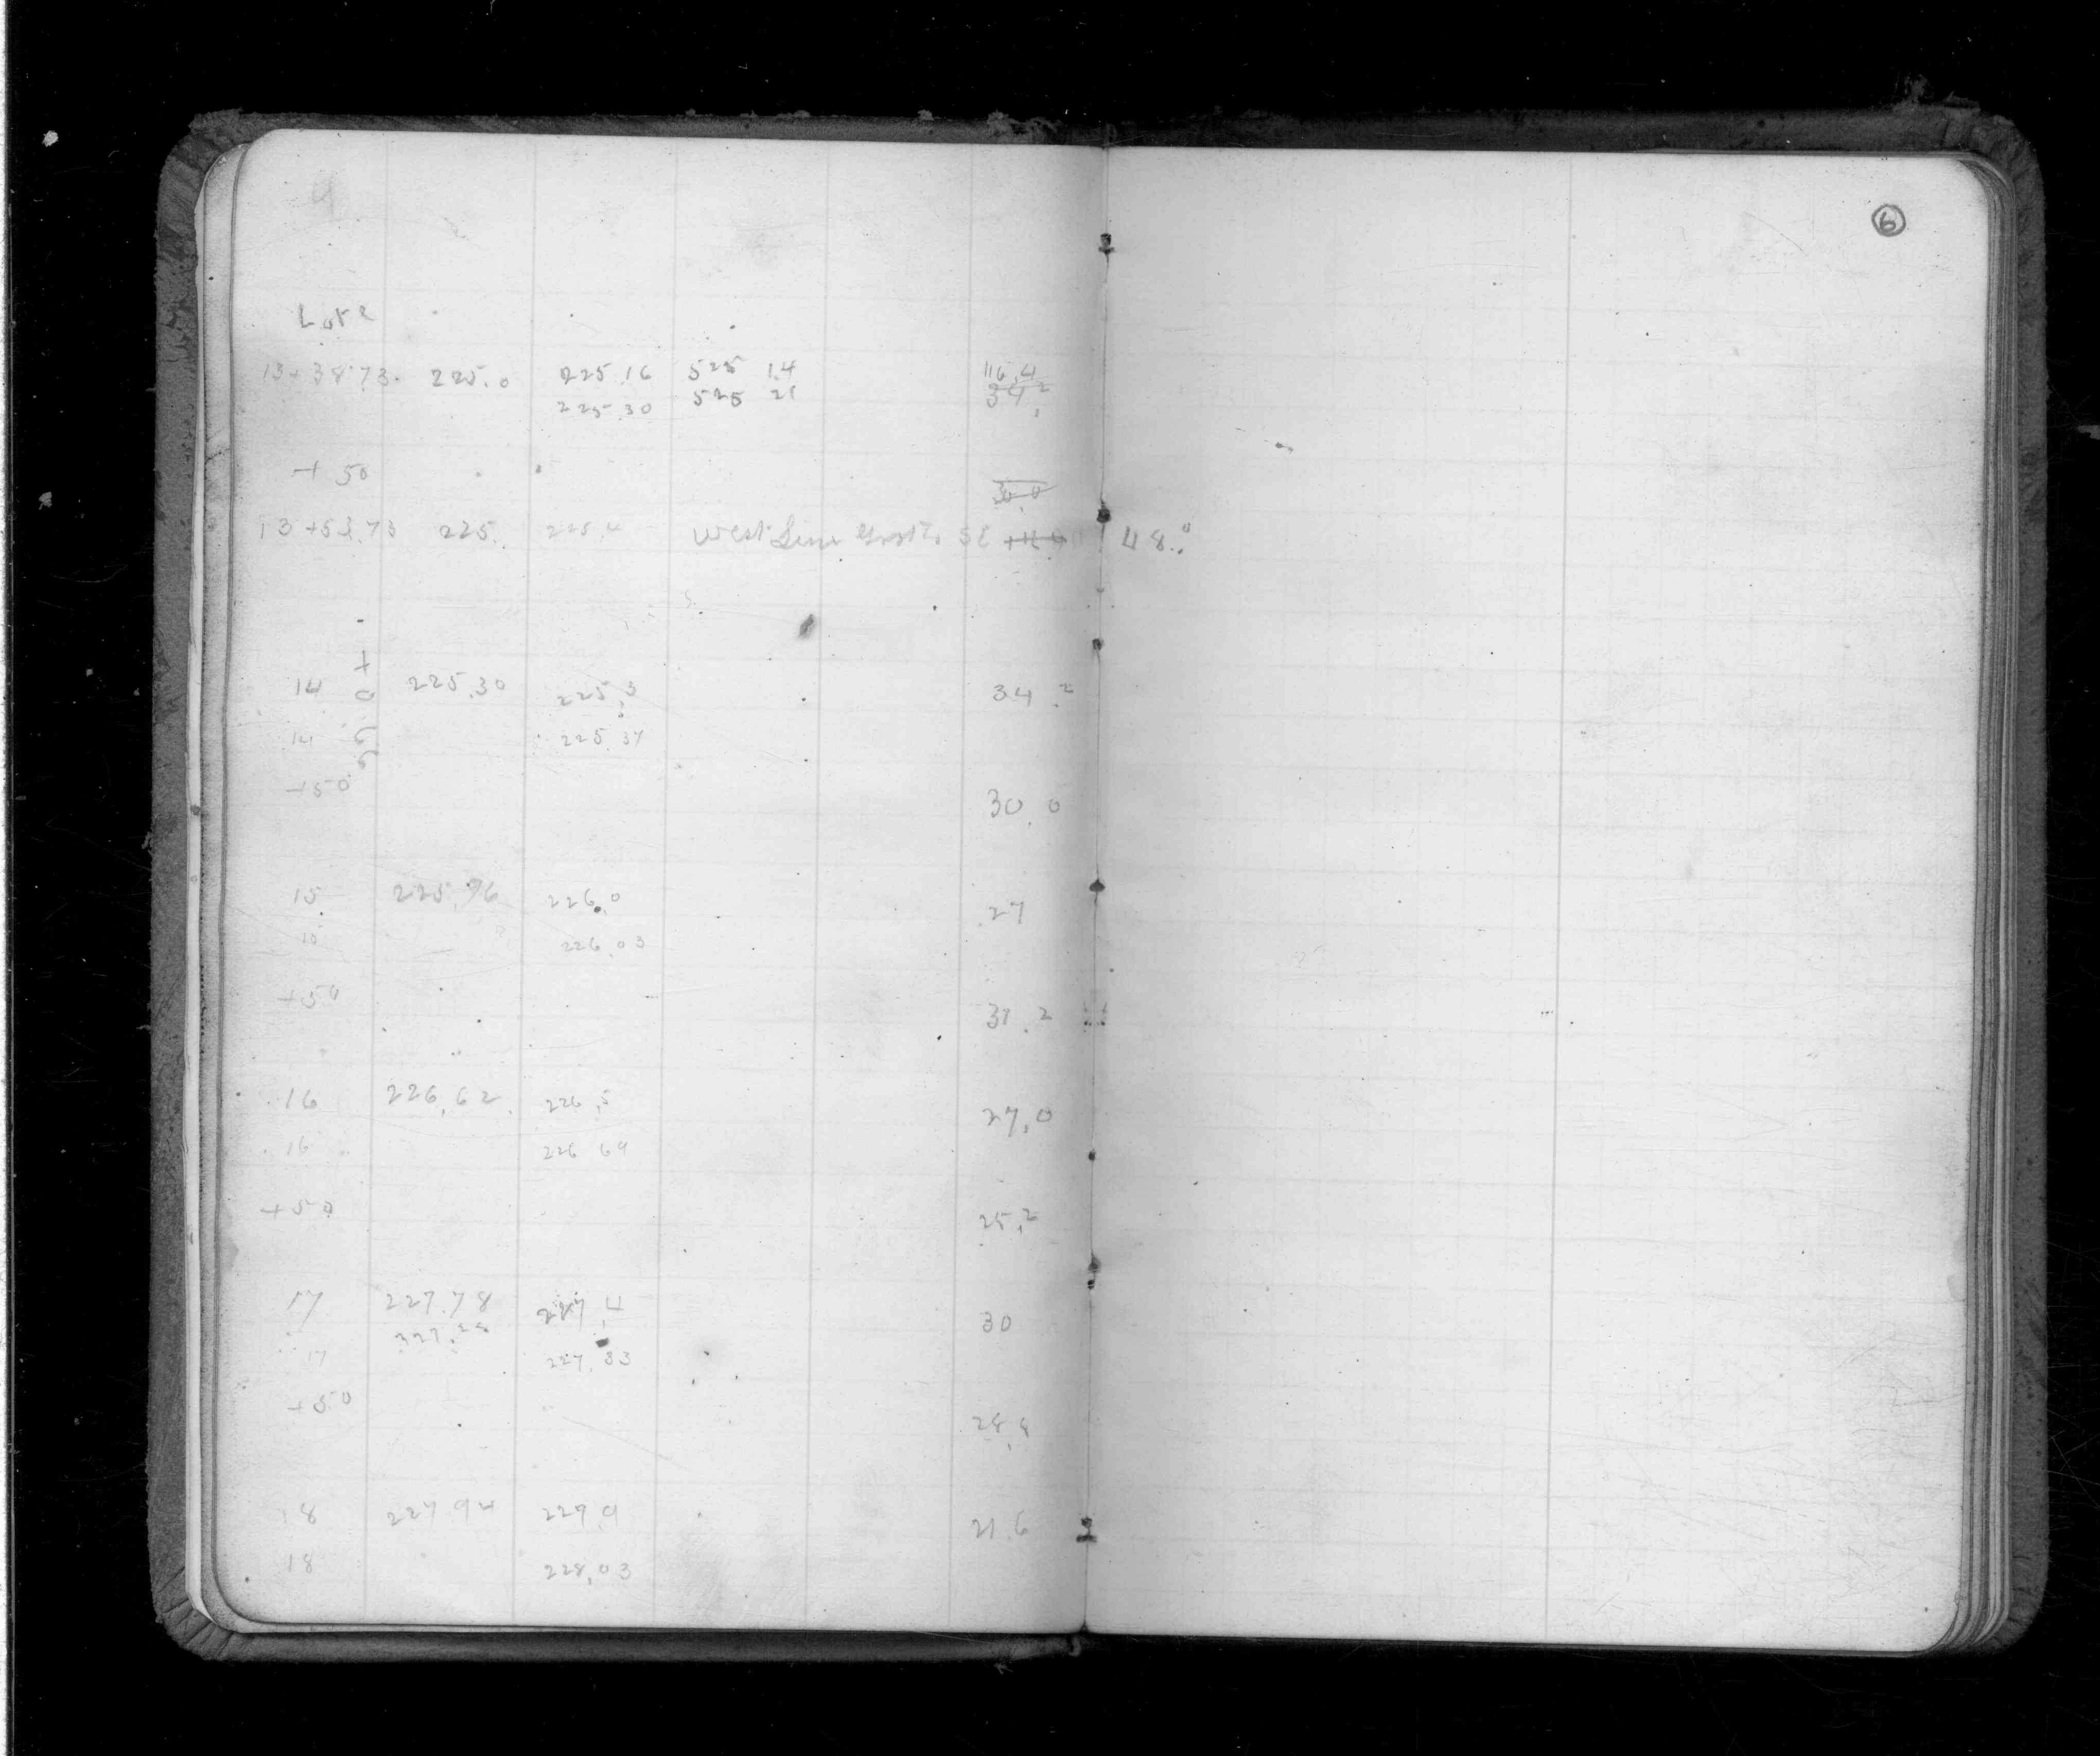 6
13+38.73 225.0 225.16 525 14 116.4
225.30 525 21 34.2
+50 30.0
13+53.73 225. 225.4 West Line SE 48.0
14 +0.66 225.30 225.3 34.2
14 225.37
+50 30.0
15 225.96 226.0 27
15 226.03
+50 31.2
16 226.62 226.5 27.0
16 226 69
+50 25.2
17 227.78 227.4 30
227.28
17 227.33
+50 28.8
18 227.94 227.9 21.6
18 228.03